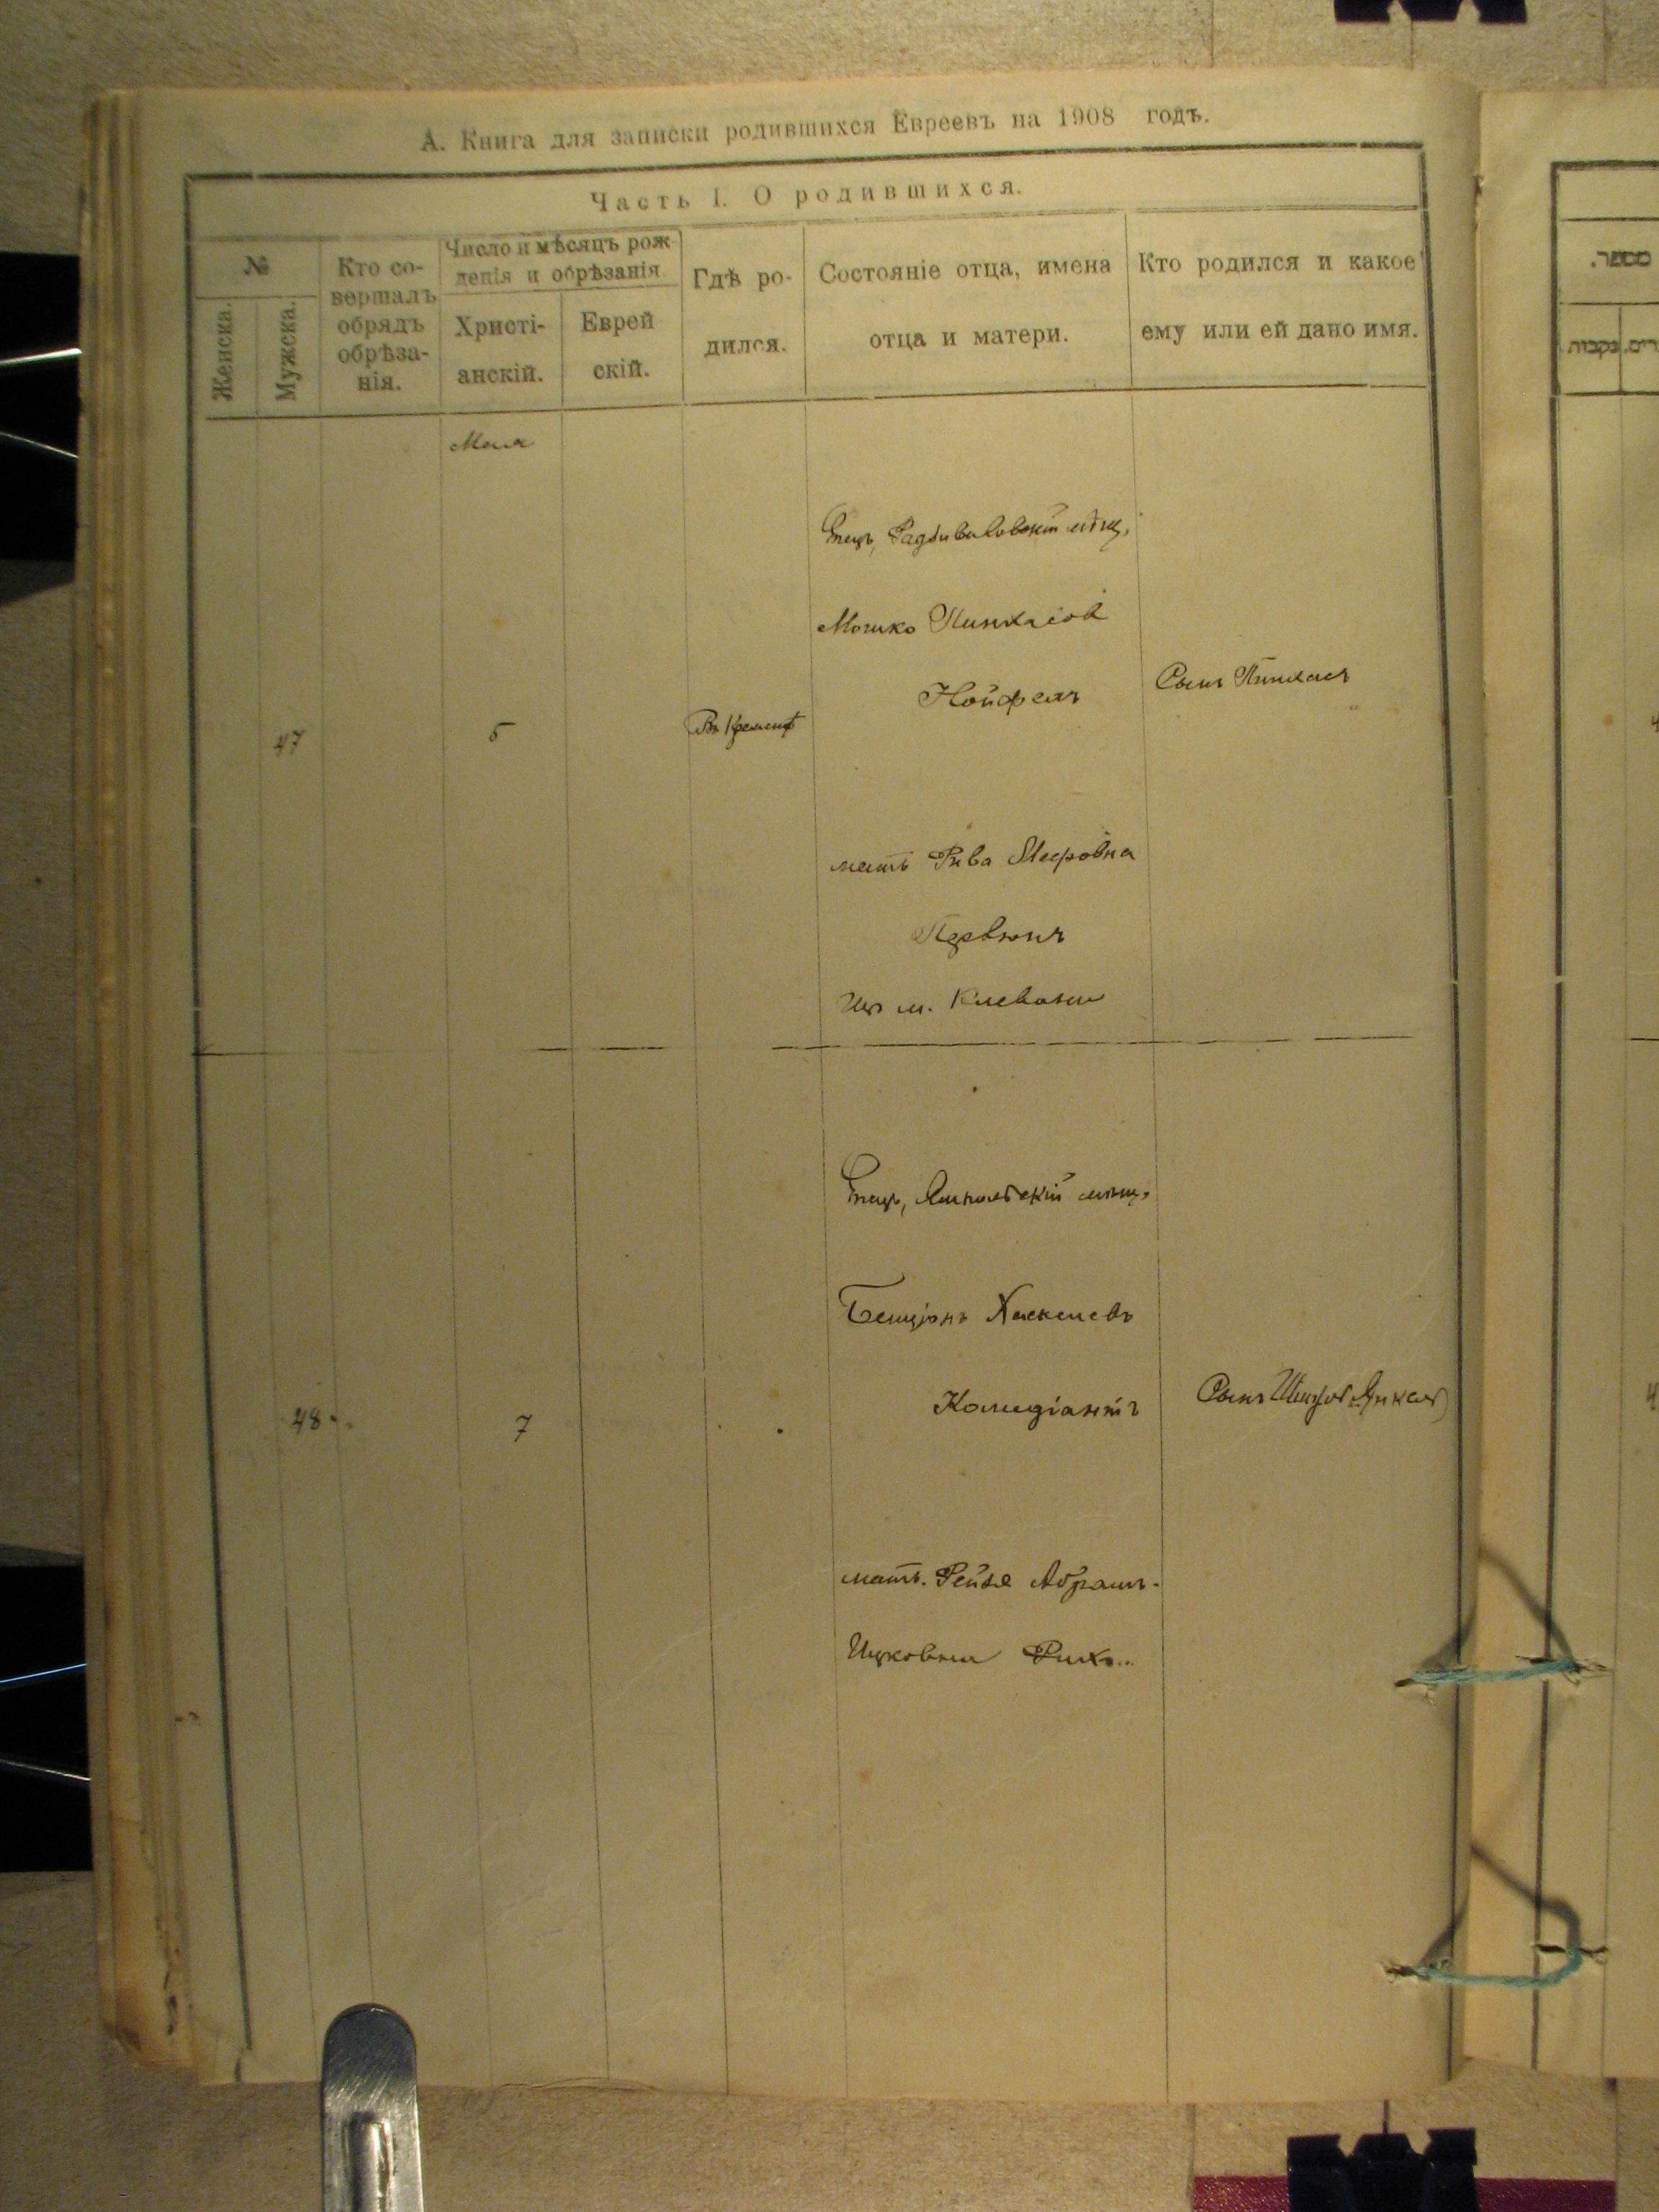 А. Книга для записки родившихся Евреевъ на 1908 годъ.
Часть I. О родившихся.
№
Женска.
Мужска.
Кто со-
вершалъ
обрядъ
обрѣза-
нія.
Число и мѣсяцъ рож-
денія и обрѣзанія
Христі-
анскій.
Еврей
скій.
Гдѣ ро-
дился.
Состояніе отца, имена
отца и матери.
Кто родился и какое
ему или ей дано имя.
מספר.
נקבות.
Мая
47
5
Въ Кременцѣ
Отецъ, Радзивиловскій мѣщ.
Мошко Пинхасов
Нойфелъ
мать Рива Мееровна
Из м. Клевани
Сынъ Пинхасъ
48
7
Отецъ, Ямпольскій мѣщ.
Бенціонъ Хаскелевъ
Комедіантъ
мать. Рейзя Абрамъ-
Ицковна
Сынъ Янкель